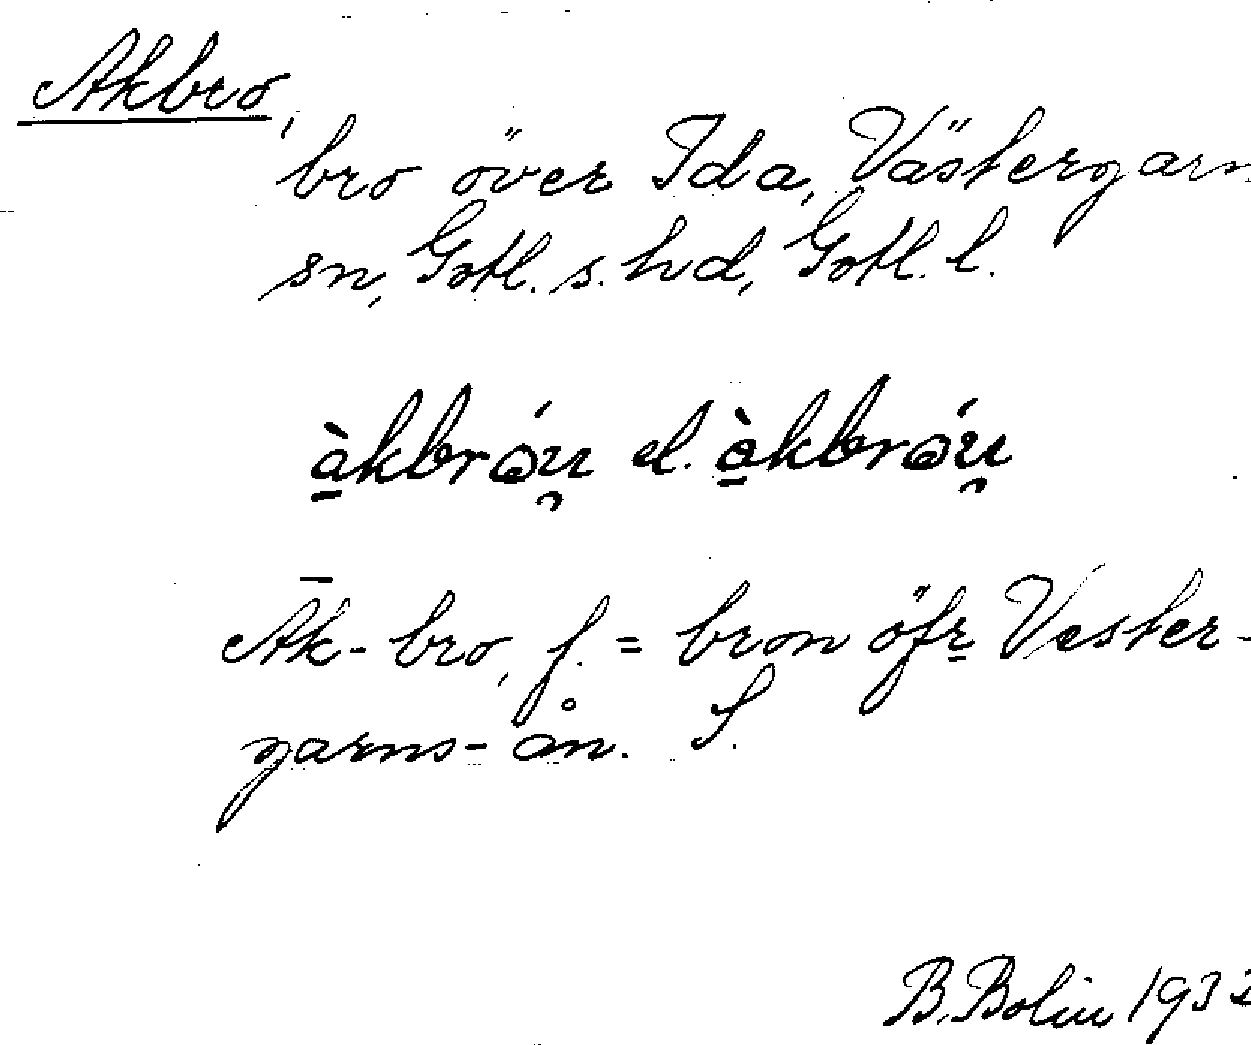 Akbro,
bro över Ida, Västergarn
sn, Gotl. s. hd, Gotl. l.
à̱kbrɷ́u̯ el. à̱kbrɷ́u̯
Āk-bro, f. = bron öfr Vester-
garns-ån. S.
B. Bolin 193